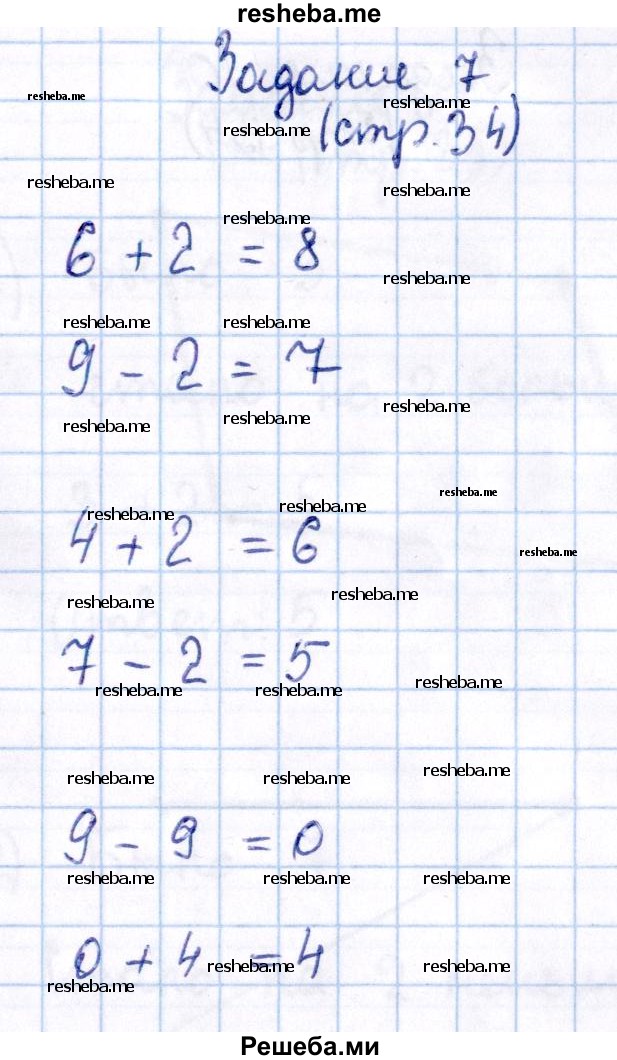 resheba.me
Задание 7
resheba.me
resheba.me
resheba.me (стр. 34)
resheba.me
resheba.me
resheba.me
6 + 2 = 8
resheba.me
resheba.me resheba.me
9 - 2 = 7
resheba.me
resheba.me resheba.me
resheba.me
resheba.me resheba.me
4 + 2 = 6
resheba.me
resheba.me resheba.me
7 - 2 = 5
resheba.me resheba.me resheba.me
resheba.me resheba.me resheba.me
9 - 9 = 0
resheba.me resheba.me resheba.me
0 + 4 = 4
resheba.me resheba.me
resheba.me
Решеба.ми